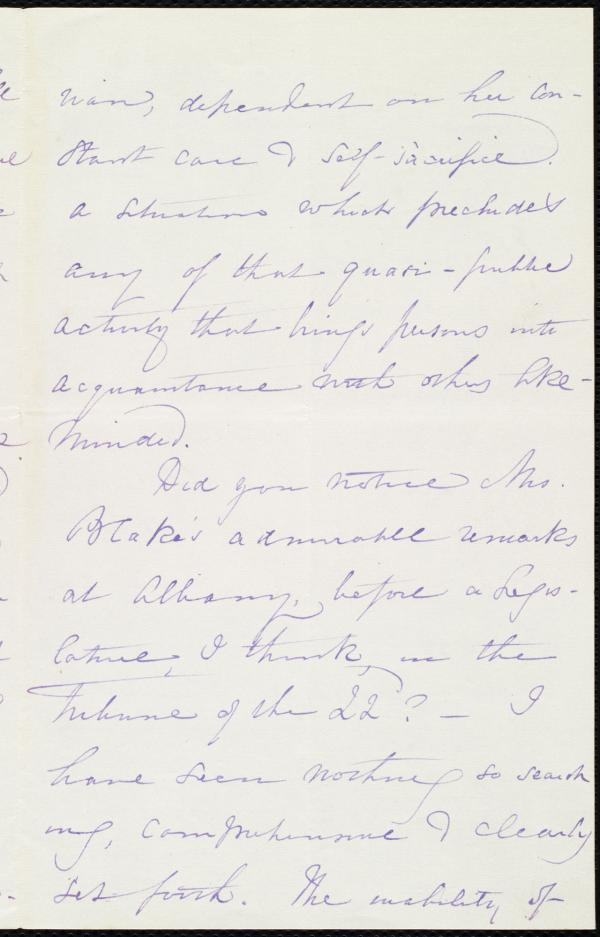 rian, dependent on her con-
stant care & self-sacrifice.
a situation which precludes
any of that quasi-public
activity that brings persons into
acquaintance with others like-
minded.
Did you notice Mrs.
Blake's admirable remarks
at Albany, before a Legis-
lature, I think, in the
Tribune of the 22d? — I
have seen nothing so search
ing, comprehensive & clearly
set forth. The inability of